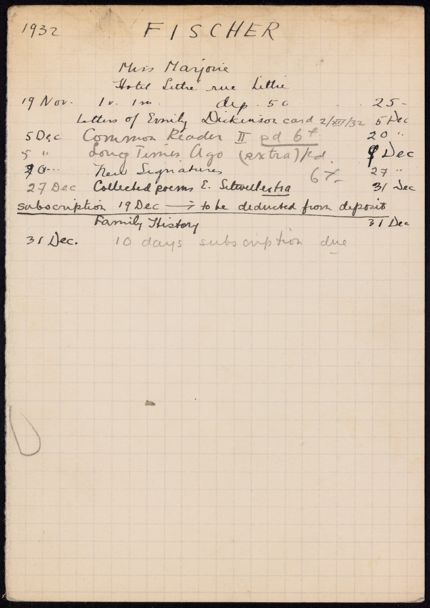 1932 FISCHER
Miss Marjorie
Hotel Littré rue Littré
19 Nov. 1v. 1m. dep. 50 25 -
Letters of Emily Dickenson card 2/XII/32 5 Dec
5 Dec Common Reader II pd 6f 20 "
5 " Long Times Ago (extra) 9 Dec
New Signatures 6f- 27 "
27 Dec Collected poems E. 31 Dec
subscription 19 Dec → to be deducted from deposit
Family History 31 Dec
31 Dec. 10 days subscription due